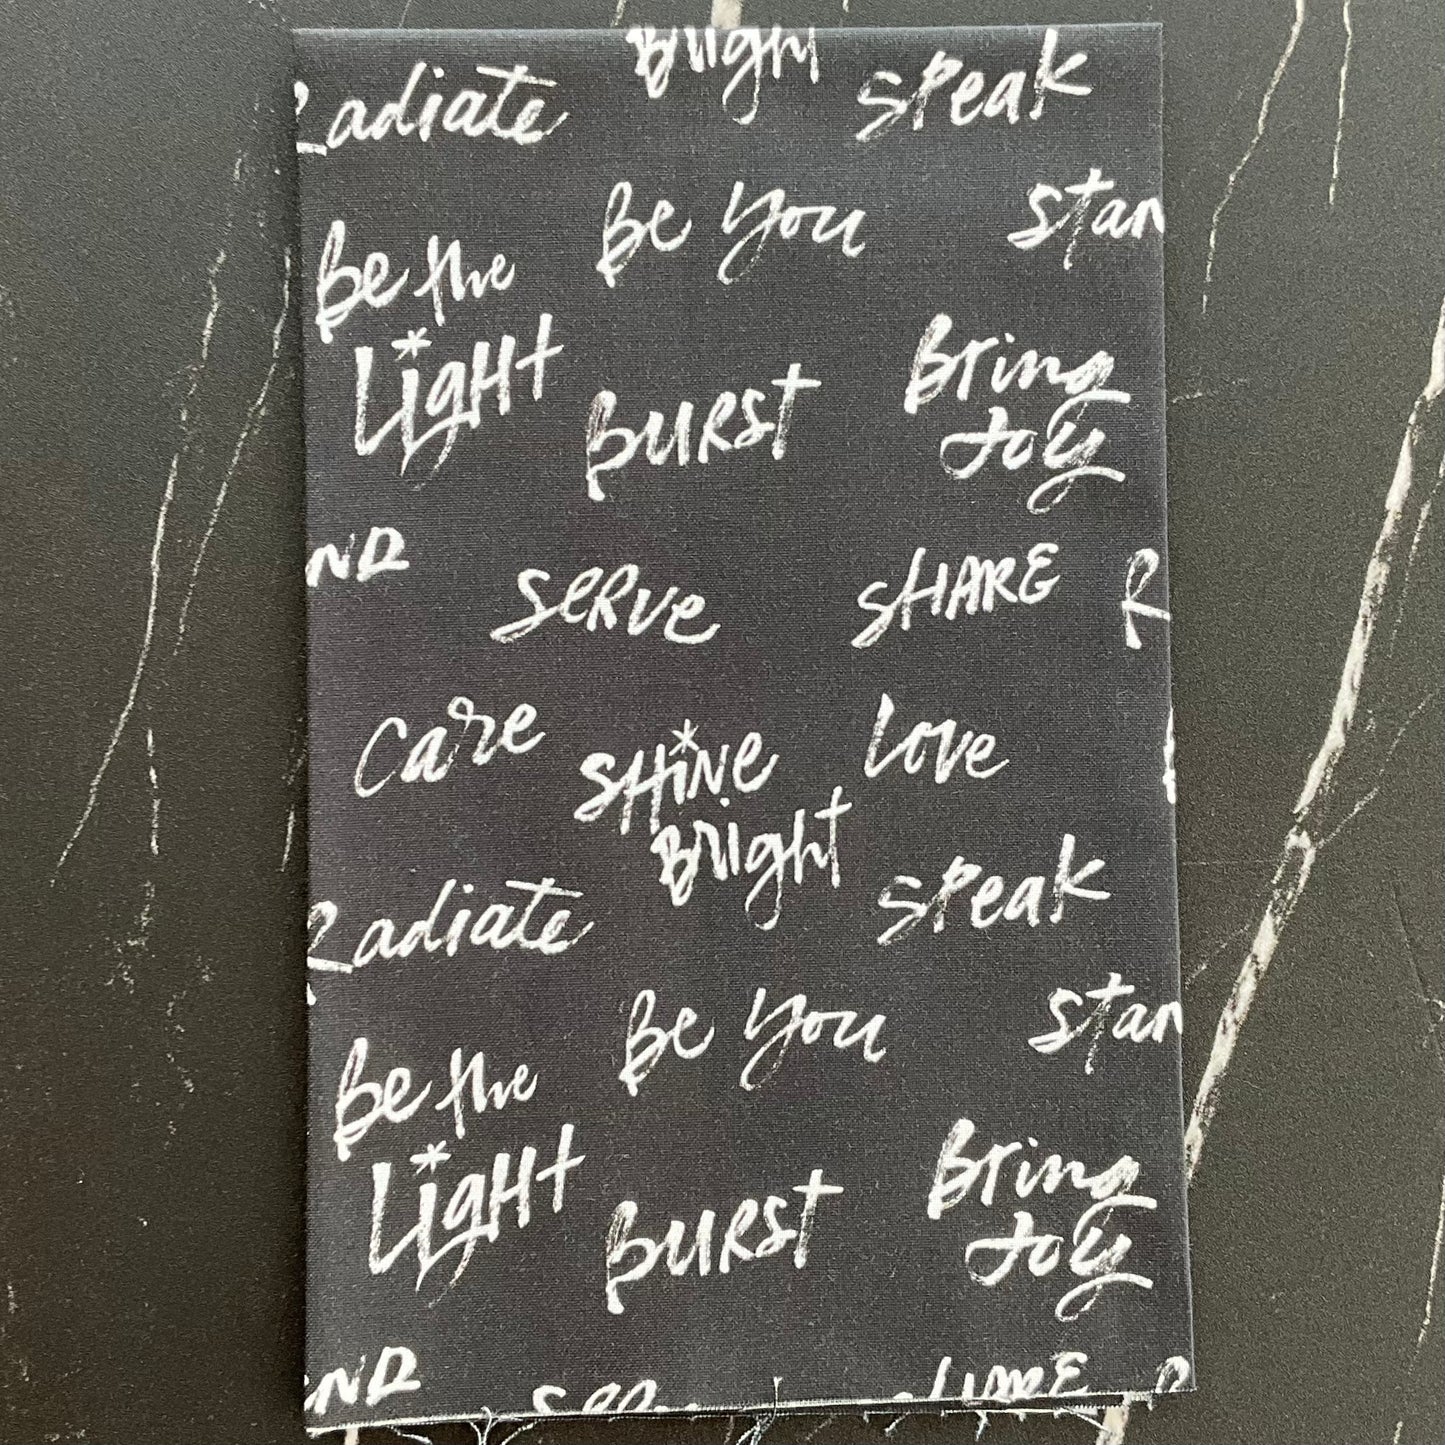 Bright
Radiate
Speak
Be You
Stan
Be the
Light
Burst
Bring
Joy
ND
Serve
SHARE
R
Care
Love
SHiNe
Bright
Radiate
Speak
Be You
Stan
Be the
Light
Burst
Bring
Joy
ND
SHARE